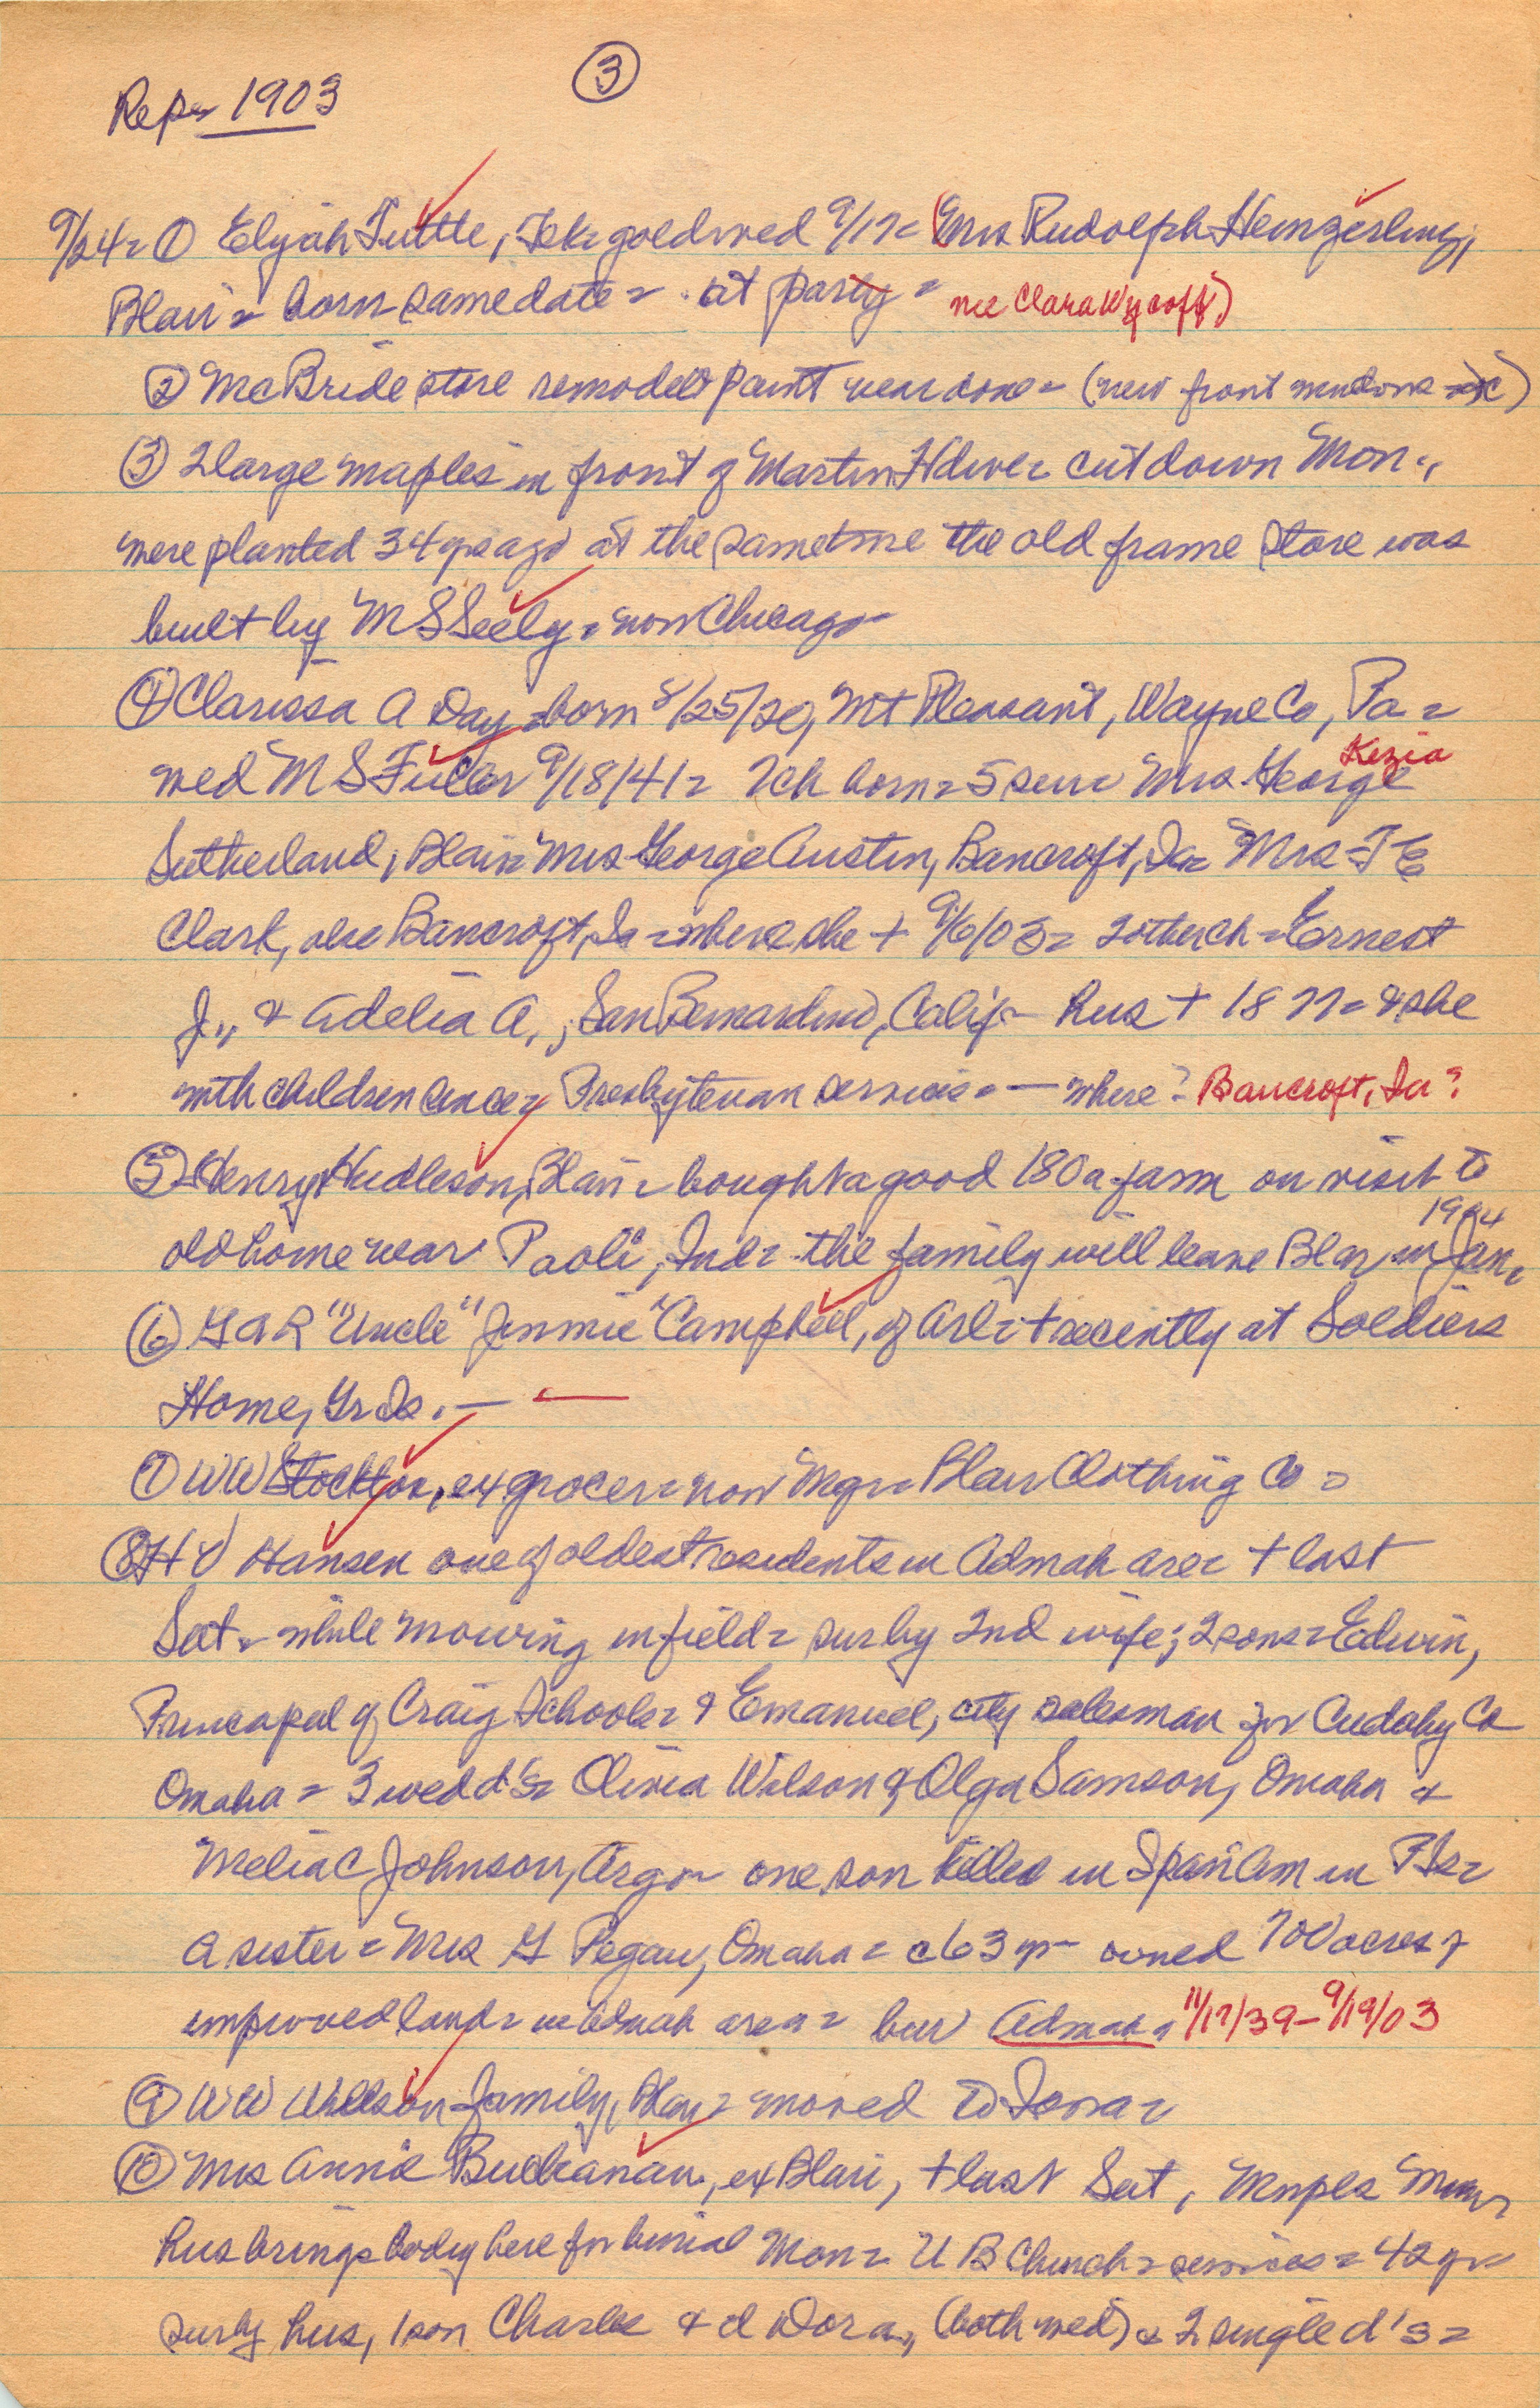 ③
Repr 1903
9/24= ① Elijah Tuttle, Tek= gold wed 9/17= (Mrs Rudolph Heinzerling,
Blair= born same date= at party= nee Clara Wycoff)
② McBride store remodel & paint near done= (new front windows etc)
③ 2 large maples in front of Martin Hdwe= cut down Mon.,
were planted 34 yrs ago at the same time the old frame store was
built by M S Seely= now Chicago
④ Clarissa A Day= born 8/25/20, Mt Pleasant, Wayne Co, Pa=
wed M S Fuller 9/18/41= 7 ch born= 5 sur= Mrs George Kezia
Sutherland, Blair= Mrs George Austin, Bancroft, Ia= Mrs F E
Clark, also Bancroft, Ia= where she + 9/6/03= 2 other ch= Ernest
J., & Adelia A., San Bernardino, Calif= hus + 1877= & she
with children since= Presbyterian services= — where? Bancroft, Ia?
⑤ Henry Hudleson, Blair= bought a good 180 a farm on visit to
old home near Paoli, Ind= the family will leave Blair in Jan, 1904
⑥ G A R "Uncle" Jimmie Campbell, of Arl= + recently at Soldiers
Home, Gr Is. —
⑦ W W Stockton, ex grocer= now Mgr= Blair Clothing Co=
⑧ H Hansen one of oldest residents in Admah area= + last
Sat= while mowing in field= sur by 2nd wife; 2 sons= Edwin,
Principal of Craig Schools= & Emanuel, city salesman for Cudahy Co
Omaha= 3 wed d's= Olivia Wilson & Olga Samson, Omaha &
Melia C Johnson, Argo= one son killed in Span Am in P Is=
a sister= Mrs G Pegau, Omaha= c 63 yr= owned 700 acres of
improved land= in Admah area= bur Admah= 11/17/39–9/19/03
⑨ W W Willson family, Blair= moved to Iowa=
⑩ Mrs Annie Buchanan, ex Blair, + last Sat, Mnpls Minn=
hus brings body here for burial Mon= U B Church= services= 42 yr=
sur by hus, 1 son Charles & d Dora, (both wed) & 2 single d's=